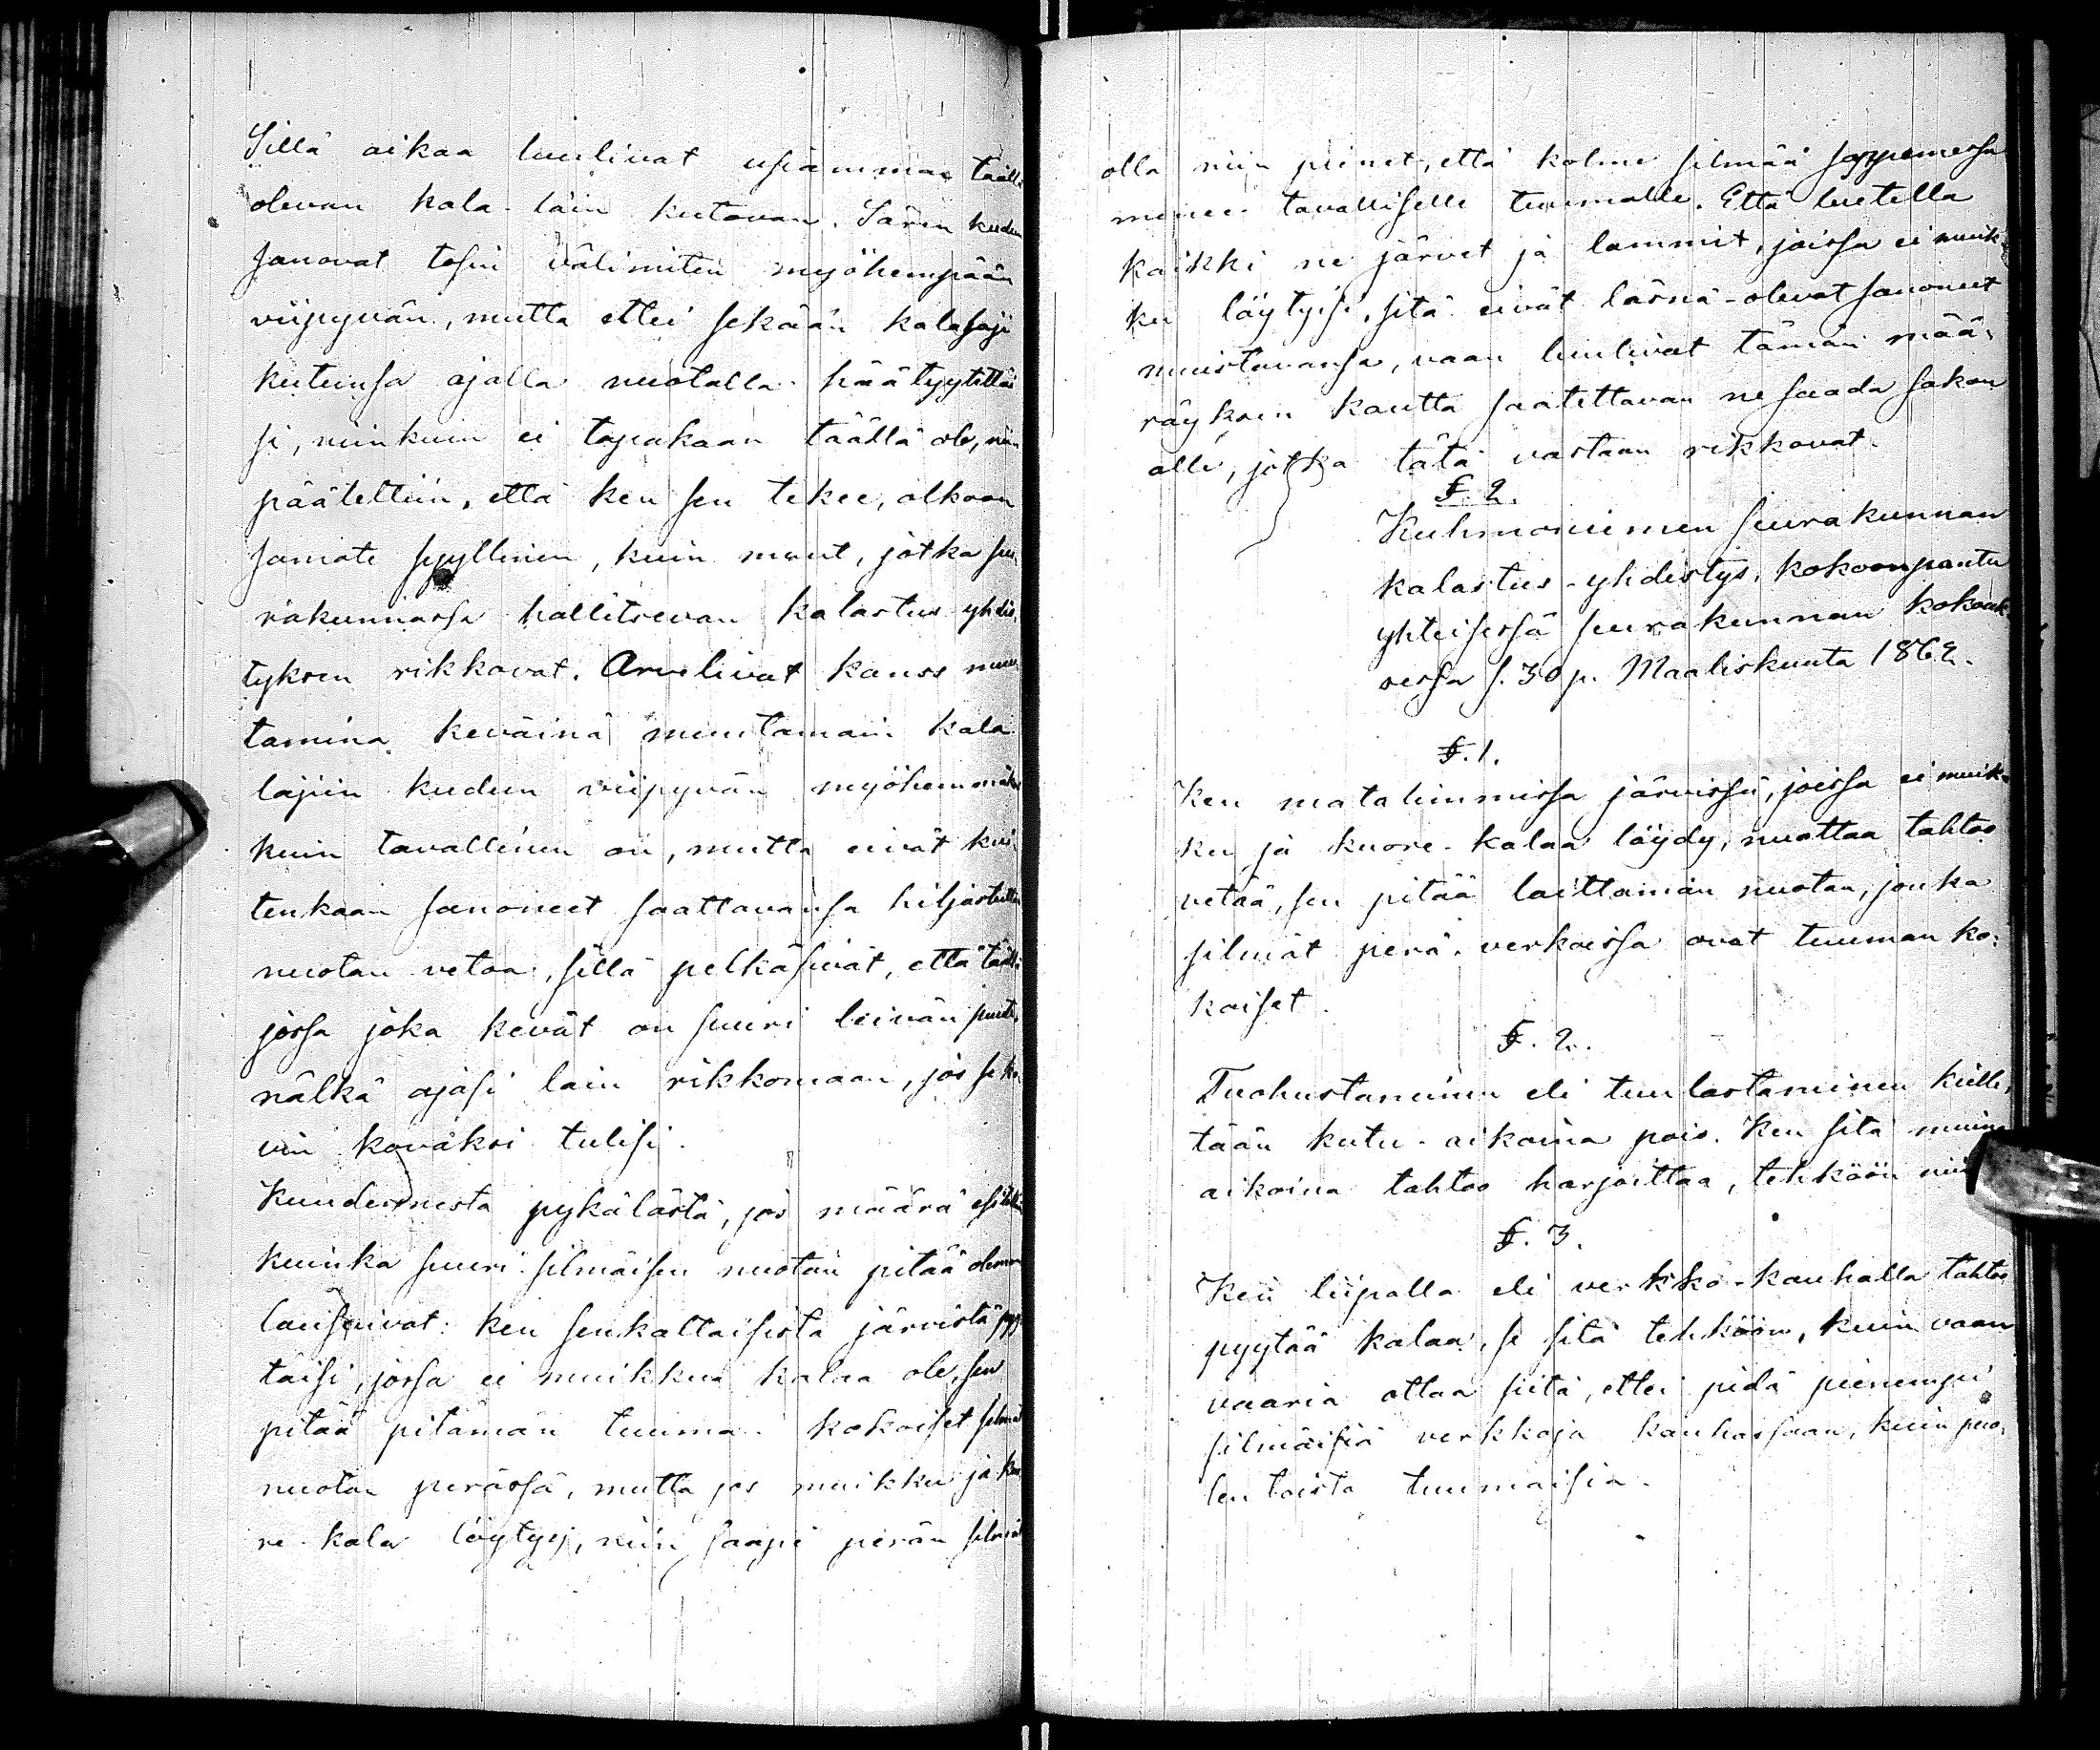 Sillä aikaa luulivat usiamman täällä
olevan kala-läin kutovan. Sä́ren kudun
sanovat tosin välimiten myöhempään
viipyvän, mutta ettei sekään kalalaji
kutunsa ajalla nuotalla häätyytettäi
si, niinkuin ei tapakaan täällä ole, niin
päätettiin, että ken sen tekee, olkoon
samate syyllinen, kuin muut, jotka seu
rakunnassa hallitsevan kalastus yhdis
tyksen rikkovat. Arvelivat kanss muu
tamina keväinä muutamain kala
lajiin kudun viipyvän myöhemmäksi
kuin tavallinen on, mutta eivät kui
tenkaan sanoneet saattavansa hiljastuttaa
nuotan vetoa, sillä pelkäsivät, että täällä
jossa joka kevät on suuri leivän puute,
nälkä ajasi lain rikkomaan, jos se ko
vin kovaksi tulisi.
Kuudennesta pykälästä, jos määrä
kuinka suuri silmäisen nuotan pitää oleman
lausuivat: ken senkaltaisista järvistä pyy
täisi, jossa ei muikkua kalaa ole, sen
pitää pitämän tuuma kokoiset silmät
nuotan perässä, mutta jos muikku ja kuo
re kala löytyy, niin saapi perän silmät
olla niin pienet, että kolme silmää
menee tavalliselle tuumalle. Että luetella
kaikki ne järvet ja lammit, joissa ei muik
ku löytyisi, sitä eivät läsnä-olevat sanoneet
muistavansa, vaan luulivat tämän mää
räyksen kautta saatettavan ne saada sakon
alle, jotka tätä vastaan rikkovat.
§. 2.
Kuhmoniemen seurakunnan
kalastus-yhdistys, kokoonpantu
yhteisessä seurakunnan kokouk
sessa s. 30 p. Maaliskuuta 1862.
§. 1.
Ken matalimmissa järvissä, joissa ei muik
ku ja kuore-kalaa löydy, nuottaa tahtoo
vetää, sen pitää laittaman nuotan, jonka
silmät perä-verkoissa ovat tuuman ko
koiset.
§. 2.
Tuohustaminen eli tuulastaminen kielle
tään kutu-aikoina pois. Ken sitä muina
aikoina tahtoo harjoittaa, tehköön niin
§. 3.
Ken liipalla eli verkko-kauhalla tahtoo
pyytää kalaa, se sitä tehköön, kuin vaan
vaaria ottaa siitä, ettei pidä pienempi
silmäisiä verkkoja kauhassaan, kuin puo
len toista tuumaisia.